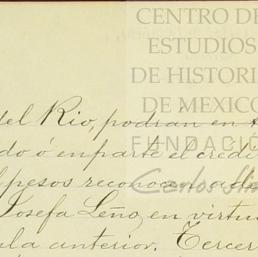 CENTRO DE
ESTUDIOS
DE HISTORI
DE MEXICO
FUNDACIÓ
Carlos
del Rio, podran en
do ó en parte el credi
pesos reconocen a
Josefa Leño, en virtu
la anterior. Tercer